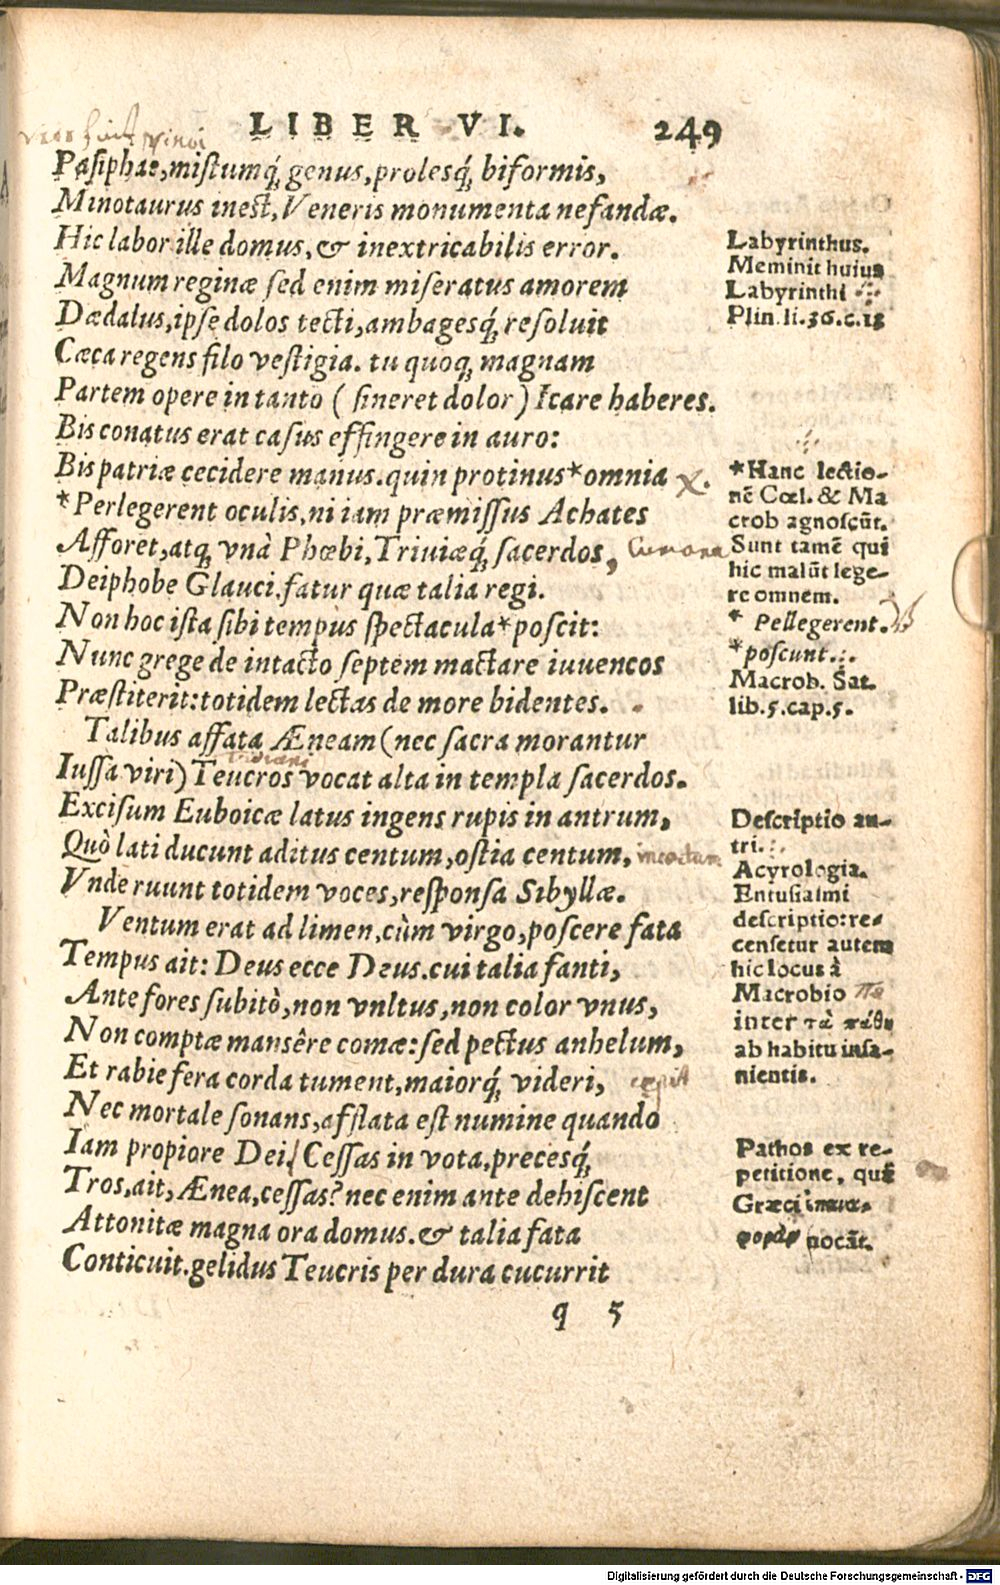 LIBER VI. 249
Pasiphaë, mistumq́; genus, prolesq́; biformis,
Minotaurus inest, Veneris monumenta nefandæ.
Hic labor ille domus, & inextricabilis error.
Magnum reginæ sed enim miseratus amorem
Dædalus, ipse dolos tecti, ambagesq́; resoluit
Cæca regens filo vestigia. tu quoq; magnam
Partem opere in tanto (sineret dolor) Icare haberes.
Bis conatus erat casus effingere in auro:
Bis patriæ cecidere manus. quin protinus *omnia
*Perlegerent oculis, ni iam præmissus Achates
Afforet, atq; vnà Phœbi, Triuiæq́; sacerdos,
Deiphobe Glauci. fatur quæ talia regi.
Non hoc ista sibi tempus spectacula *poscit:
Nunc grege de intacto septem mactare iuuencos
Præstiterit: totidem lectas de more bidentes.
Talibus affata Æneam (nec sacra morantur
Iussa viri) Teucros vocat alta in templa sacerdos.
Excisum Euboicæ latus ingens rupis in antrum,
Quò lati ducunt aditus centum, ostia centum,
Vnde ruunt totidem voces, responsa Sibyllæ.
Ventum erat ad limen, cùm virgo, poscere fata
Tempus ait: Deus ecce Deus. cui talia fanti,
Ante fores subitò, non vultus, non color vnus,
Non comptæ mansêre comæ: sed pectus anhelum,
Et rabie fera corda tument, maiorq́; videri,
Nec mortale sonans, afflata est numine quando
Iam propiore Dei. Cessas in vota, precesq́;
Tros, ait, Ænea, cessas? nec enim ante dehiscent
Attonitæ magna ora domus. & talia fata
Conticuit. gelidus Teucris per dura cucurrit
q 5
Labyrinthus.
Meminit huius
Labyrinthi
Plin. li. 36. c. 13
*Hanc lectio-
nē Cœl. & Ma
crob agnoscūt.
Sunt tamē qui
hic malūt lege-
re omnem.
* Pellegerent.
*poscunt.
Macrob. Sat.
lib. 5. cap. 5.
Descriptio an-
tri.
Acyrologia.
Entusiasmi
descriptio: re-
censetur autem
hic locus à
Macrobio
inter τὰ πάθη
ab habitu insa-
nientis.
Pathos ex re-
petitione, quē
Græci ἐπανα-
φορὰν vocāt.
Digitalisierung gefördert durch die Deutsche Forschungsgemeinschaft - DFG